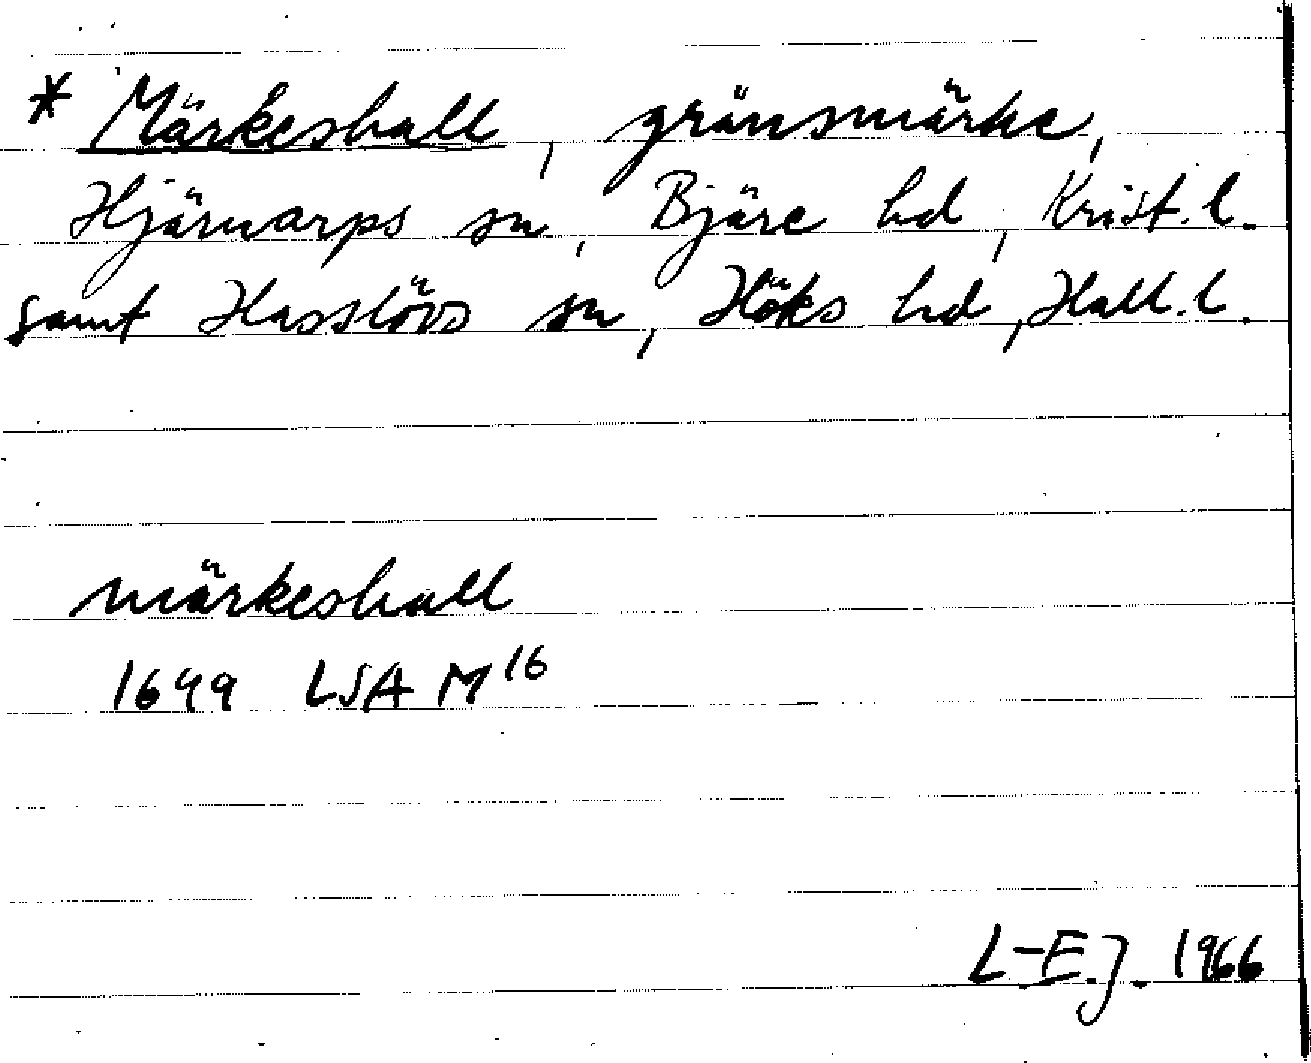 * Märkeshall, gränsmärke,
Hjärnarps sn, Bjäre hd, Krist. l.
samt Hasslövs sn, Höks hd, Hall. l.
märkeshall
1699 LSA M16
L-E.J. 1966